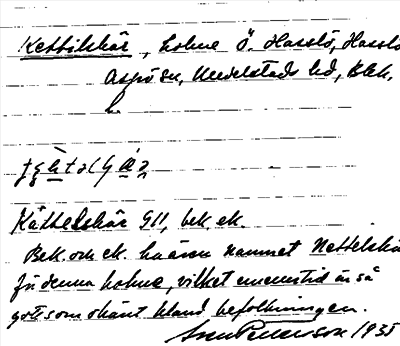 Kettilskär, holme Ö. Hasslö, Hasslö
Aspö sn, Medelstads hd, Blek.
l.
Kättelskär G11, bek. ek.
Bek. och ek. ha även namnet Nettelskär
för denna holme, vilket emellertid är så
gott som okänt bland befolkningen.
Sven Petterson 1935